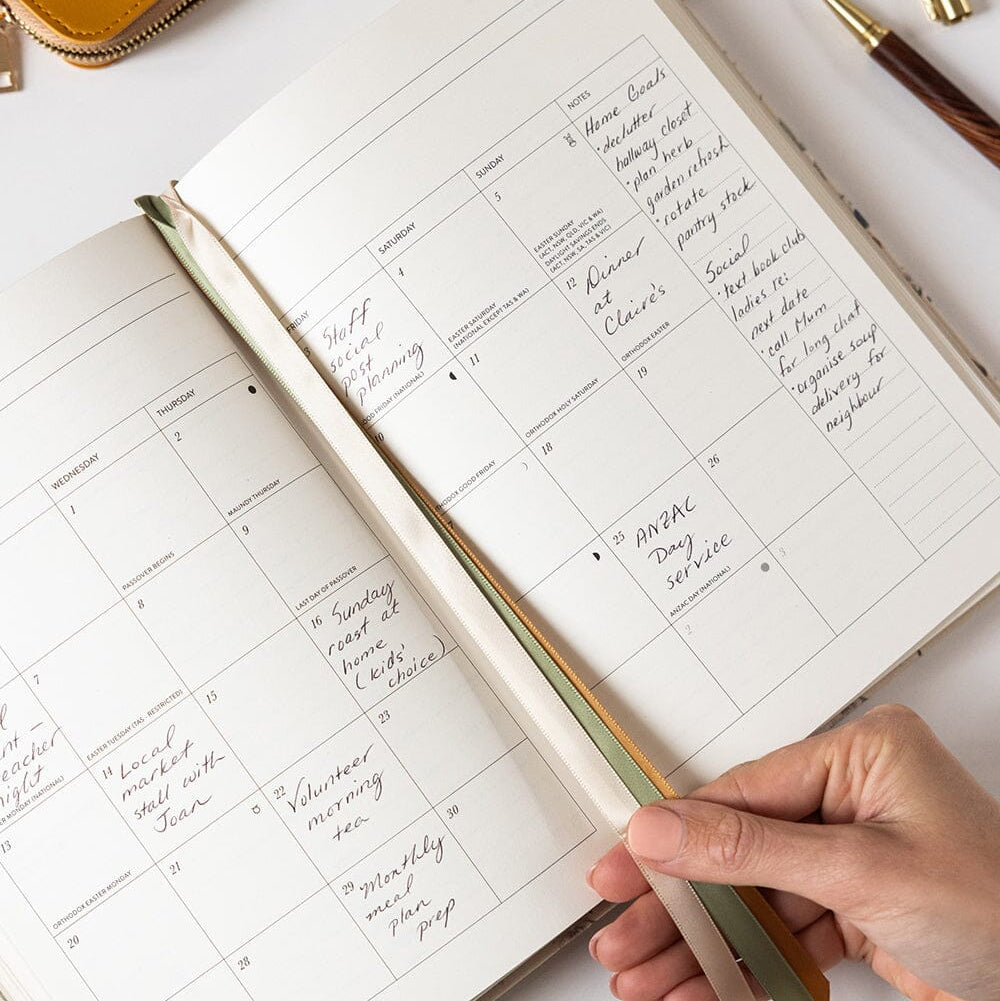 WEDNESDAY
THURSDAY
1
PASSOVER BEGINS
2
MAUNDY THURSDAY
eacher
night
MONDAY (NATIONAL)
7
EASTER TUESDAY (TAS - RESTRICTED)
8
9
LAST DAY OF PASSOVER
13
ORTHODOX EASTER MONDAY
14
Local
market
stall with
Joan
15
16
Sunday
roast at
home
(kids'
choice)
20
21
22
Volunteer
morning
tea
23
28
29
Monthly
meal
plan
prep
30
FRIDAY
SATURDAY
SUNDAY
NOTES
Staff
social
post
planning
FRIDAY (NATIONAL)
4
EASTER SATURDAY
(NATIONAL EXCEPT TAS & WA)
5
EASTER SUNDAY
(ACT, NSW, QLD, VIC & WA)
DAYLIGHT SAVINGS ENDS
(ACT, NSW, SA, TAS & VIC)
10
GOOD FRIDAY
11
ORTHODOX HOLY SATURDAY
12
Dinner
at
Claire's
ORTHODOX EASTER
18
19
25
ANZAC
Day
service
ANZAC DAY (NATIONAL)
26
2
3
Home Goals
• declutter
hallway closet
• plan herb
garden refresh
• rotate
pantry stock
Social
• text book club
ladies re:
next date
• call Mum
for long chat
• organise soup
delivery for
neighbour